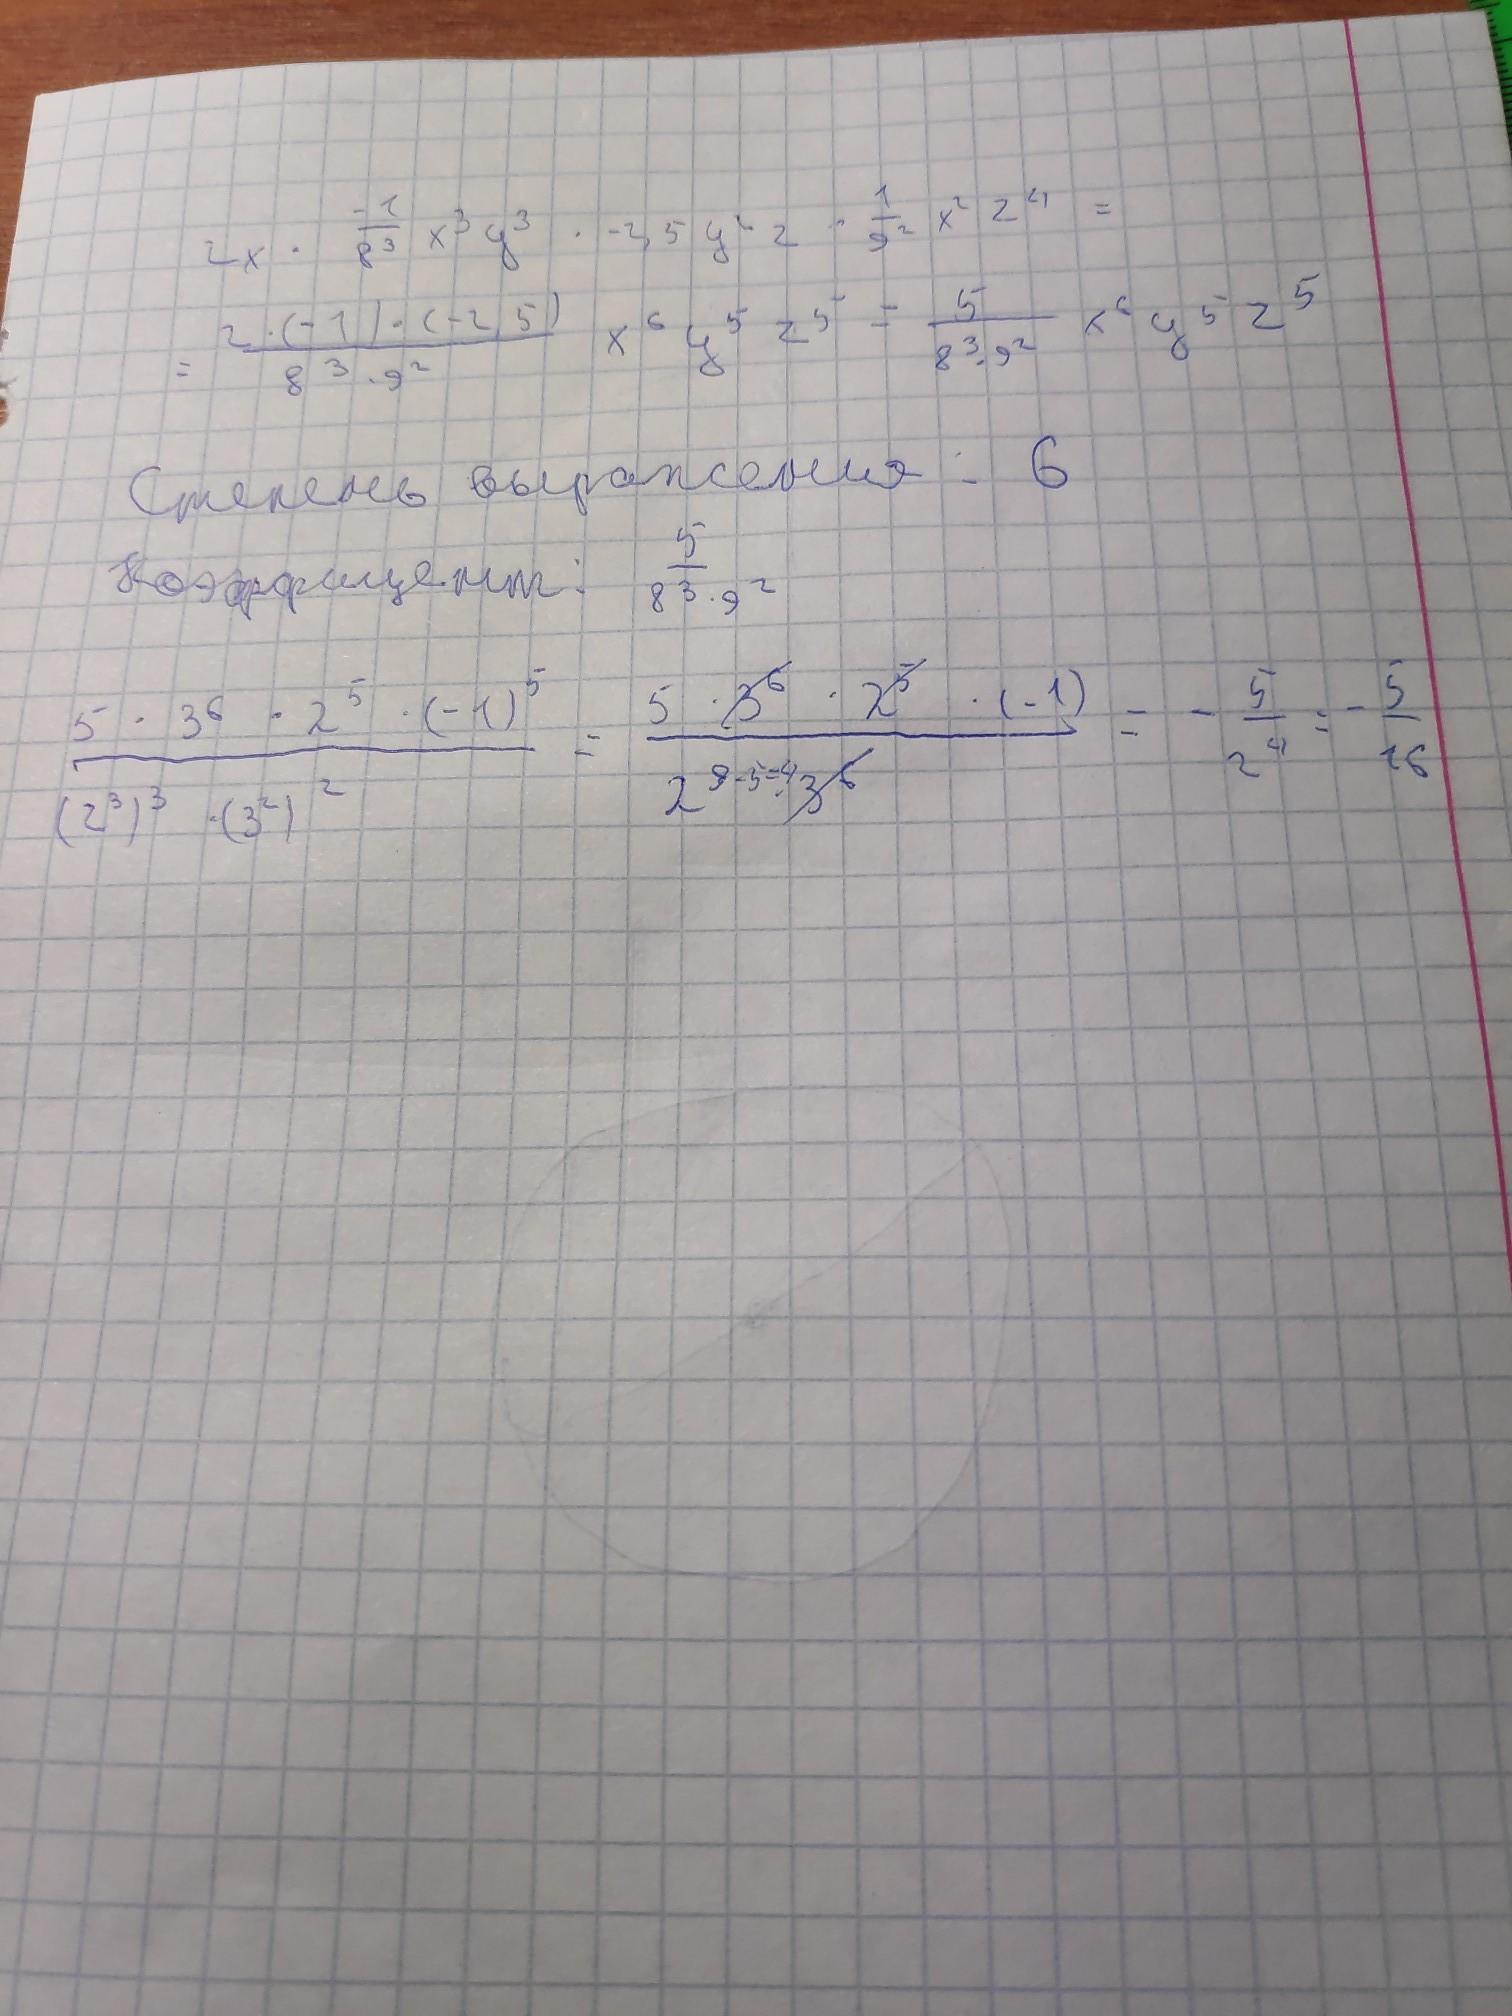 2x · -1/8³ x³y³ · -2,5 y² z · 1/9² x² z⁴ =
= 2·(-1)·(-2,5)/8³·9² x⁶ y⁵ z⁵ = 5/8³·9² x⁶ y⁵ z⁵
Степень выражения: 6
Коэффициент: 5/8³·9²
5 · 3⁶ · 2⁵ · (-1)⁵/(2³)³ · (3²)² = 5 · 3⁶ · 2⁵ · (-1)/2⁹⁻⁵⁼⁴ · 3⁶ = - 5/2⁴ = - 5/16